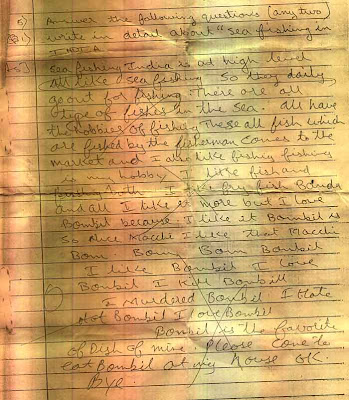 5) Answer the following questions (any two)
Q1) write in detail about "Sea fishing in
INDIA
A-5) Sea fishing India is at high level
all like sea fishing So they daily
go out for fishing There are all
type of fishes in the sea. All have
the hobbies of fishing These all fish which
are fished by the fisherman comes to the
market and I am like fishing fishing
is my hobby I like fish and
I like fry fish
and all I like it more but I love
Bombil because I like it Bombil is
So Nice Macchi I like that Macchi
Bom Bom Bom Bombil
I like Bombil I love
Bombil I Kill Bombill
I Murdered Bombil I Hate
Not Bombil I love Bombill
Bombil is the favorite
of Dish of mine. Please come to
eat Bombil at my House OK.
Bye.